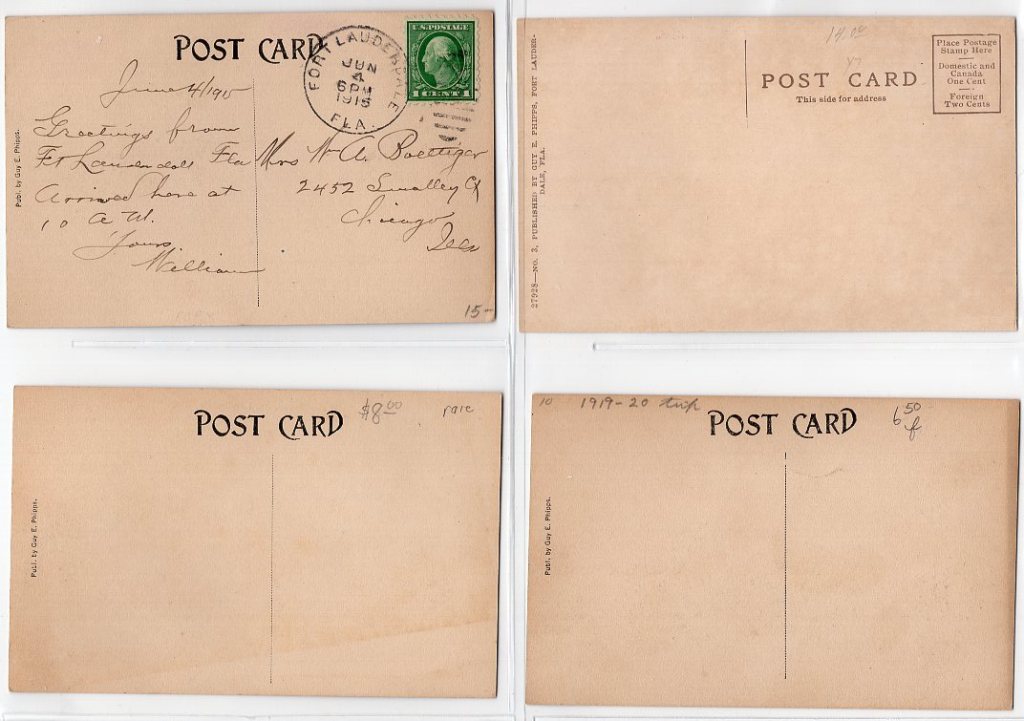 POST CARD
FORT LAUDERDALE
JUN
4
6 PM
1915
FLA.
U.S. POSTAGE
1 CENT 1
June 4/1915
Greetings from
Ft Lauderdale Fla
Arrived here at
10 A M.
Yours
William
Mrs W A Boettiger
2452 Smalley Ct
Chicago
Ills
Publ. by Guy E. Phipps.
15-
14.00
47
POST CARD
This side for address
Place Postage
Stamp Here
Domestic and
Canada
One Cent
Foreign
Two Cents
27928—NO. 3, PUBLISHED BY GUY E. PHIPPS, FORT LAUDER-
DALE, FLA.
POST CARD
$8.00
rare
Publ. by Guy E. Phipps.
10
1919-20 trip
POST CARD
6 50
f
Publ. by Guy E. Phipps.